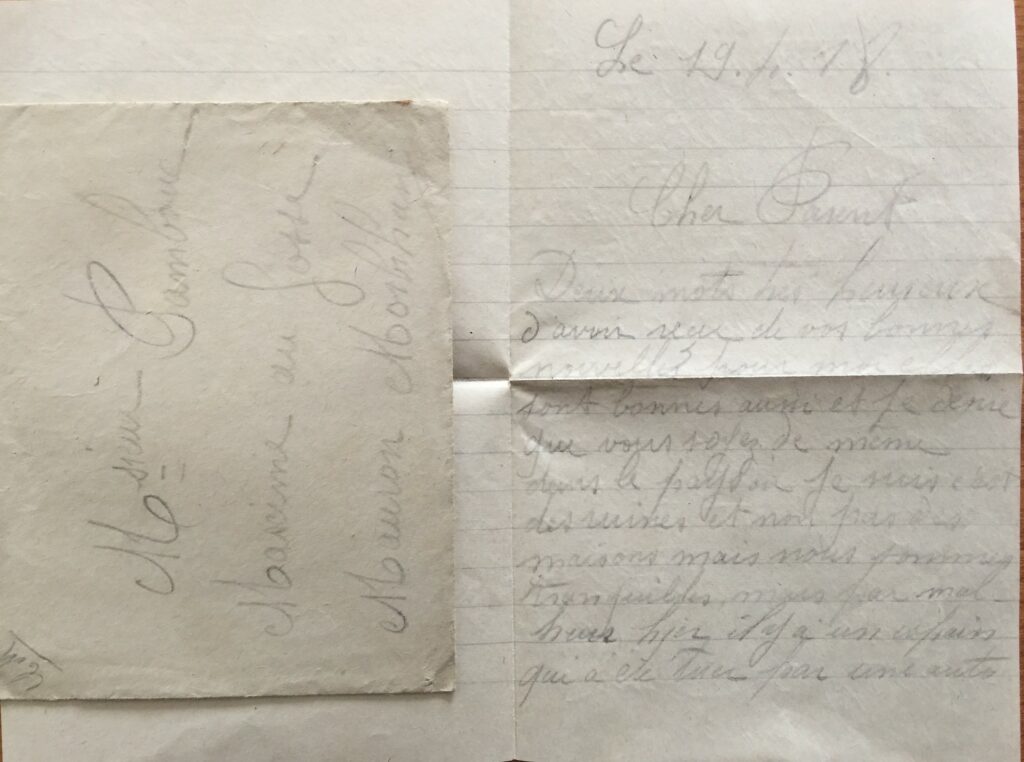 Le 19.4.18.
Cher Parent
Deux mots très heureux
d'avoir recu de vos bonnes
nouvelle pour moi
sont bonnes aussi et je désire
que vous soyez de même
dans le pays ou je suis c'est
des ruines et non pas des
maisons mais nous sommes
tranquilles, mais par mal-
heur hier il y a un copain
qui a été tuer par une auto
Msieur Pambouc
Maxime au Gosse
Mauron Morbihan